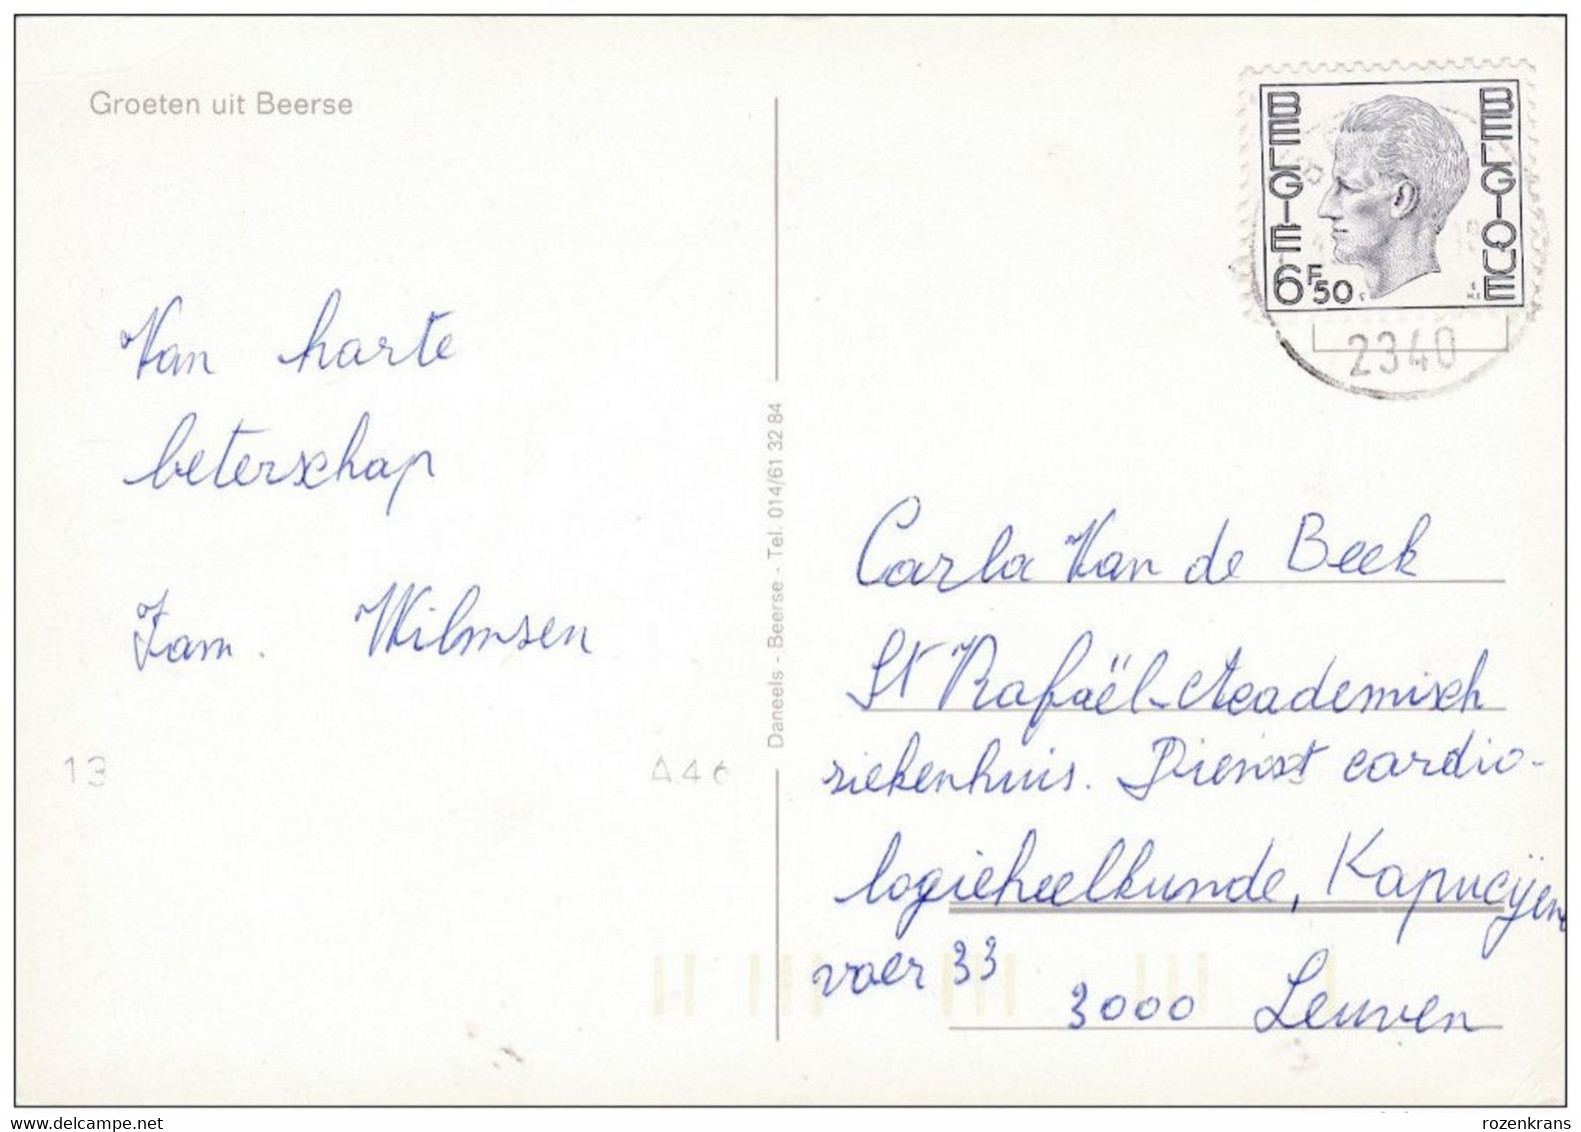 Groeten uit Beerse
BELGIE
BELGIQUE
6F50
2340
Van harte
beterschap
Fam. Wilmsen
13
A46
Daneels - Beerse - Tel. 014/61 32 84
Carla Van de Beek
St Rafaël-Academisch
ziekenhuis. Dienst cardio-
logieheelkunde, Kapucijen
voer 33
3000 Leuven
rozenkrans